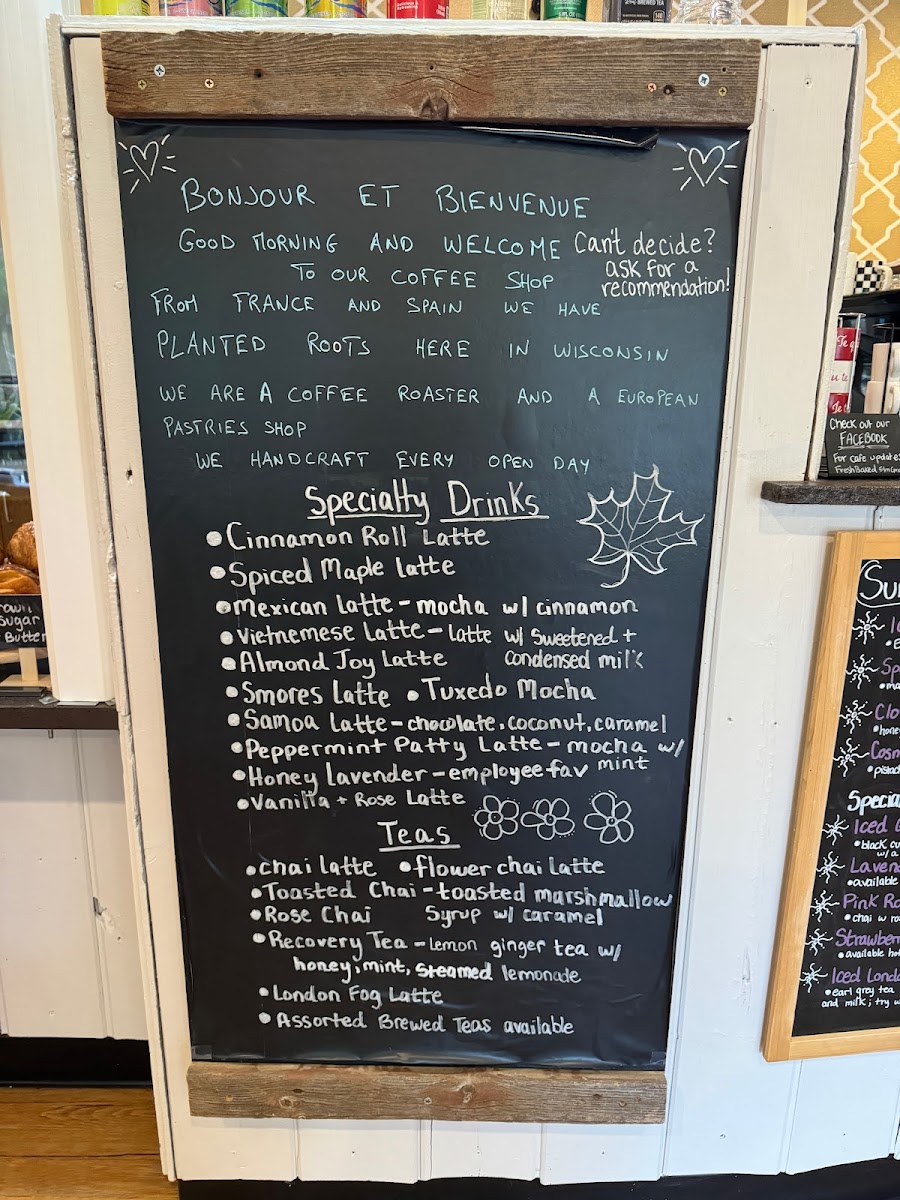 BONJOUR ET BIENVENUE
GOOD MORNING AND WELCOME
TO OUR COFFEE SHOP
Can't decide?
ask for a
recommendation!
FROM FRANCE AND SPAIN WE HAVE
PLANTED ROOTS HERE IN WISCONSIN
WE ARE A COFFEE ROASTER AND A EUROPEAN
PASTRIES SHOP
WE HANDCRAFT EVERY OPEN DAY
Specialty Drinks
•Cinnamon Roll Latte
•Spiced Maple latte
•Mexican latte - mocha w/ cinnamon
•Vietnemese Latte - latte w/ sweetened +
condensed milk
•Almond Joy Latte
•Smores Latte •Tuxedo Mocha
•Samoa Latte - chocolate, coconut, caramel
•Peppermint Patty Latte - mocha w/
mint
•Honey lavender - employee fav
•Vanilla + Rose Latte
Teas
•chai latte •flower chai latte
•Toasted Chai - toasted marshmallow
syrup w/ caramel
•Rose Chai
•Recovery Tea - Lemon ginger tea w/
honey, mint, steamed lemonade
•London Fog Latte
•Assorted Brewed Teas available
Sugar
Butter
Check out our
FACEBOOK
For cafe updates
Iced
•black
Pink
•chai w
Strawber
•available
Iced Londo
•earl grey tea
and milk; try